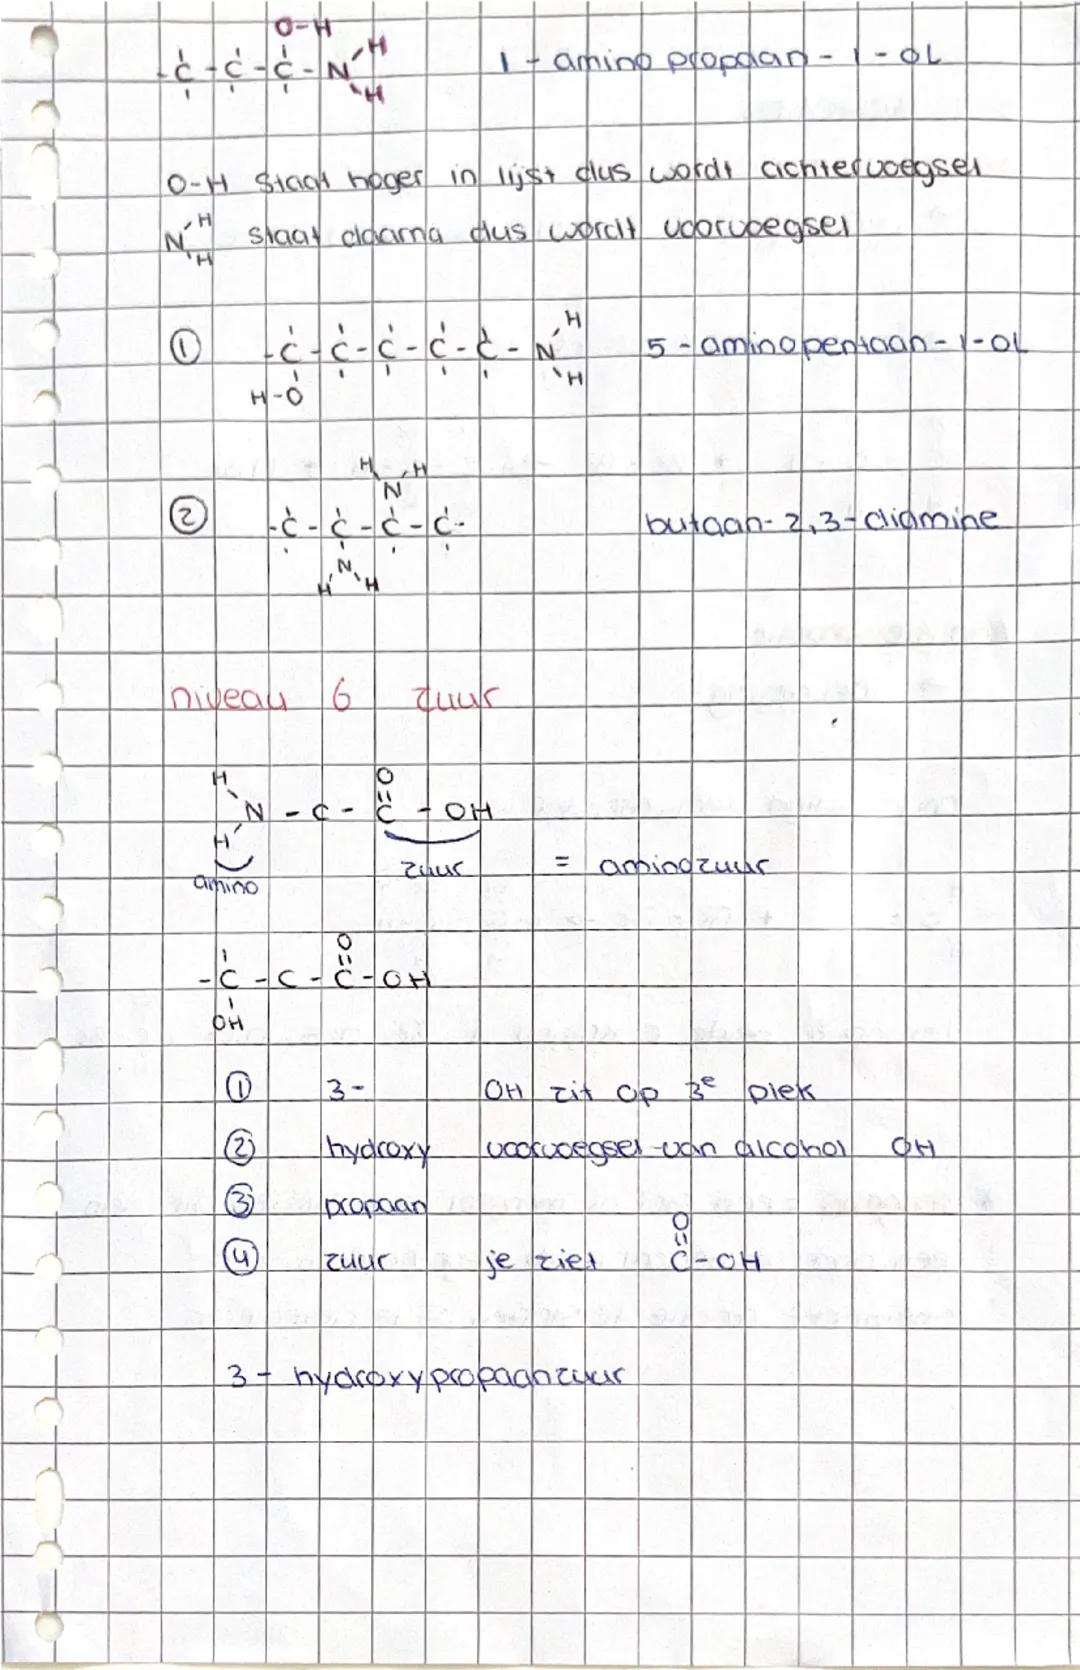 O-H
-C-C-C-N H
H
1-aminopropaan-1-OL
O-H staat hoger in lijst dus wordt achtervoegsel
N H H staat daarna dus wordt voorvoegsel
① -C-C-C-C-C-N H H 5-aminopentaan-1-OL
H-O
H H
N
② -C-C-C-C- butaan-2,3-diamine
N
H H
niveau 6 zuur
H O
N-C-C-OH
H
amino zuur = aminozuur
O
-C-C-C-OH
OH
① 3- OH zit op 3e plek
② hydroxy voorvoegsel van alcohol OH
③ propaan
④ zuur je ziet O C-OH
3-hydroxypropaanzuur